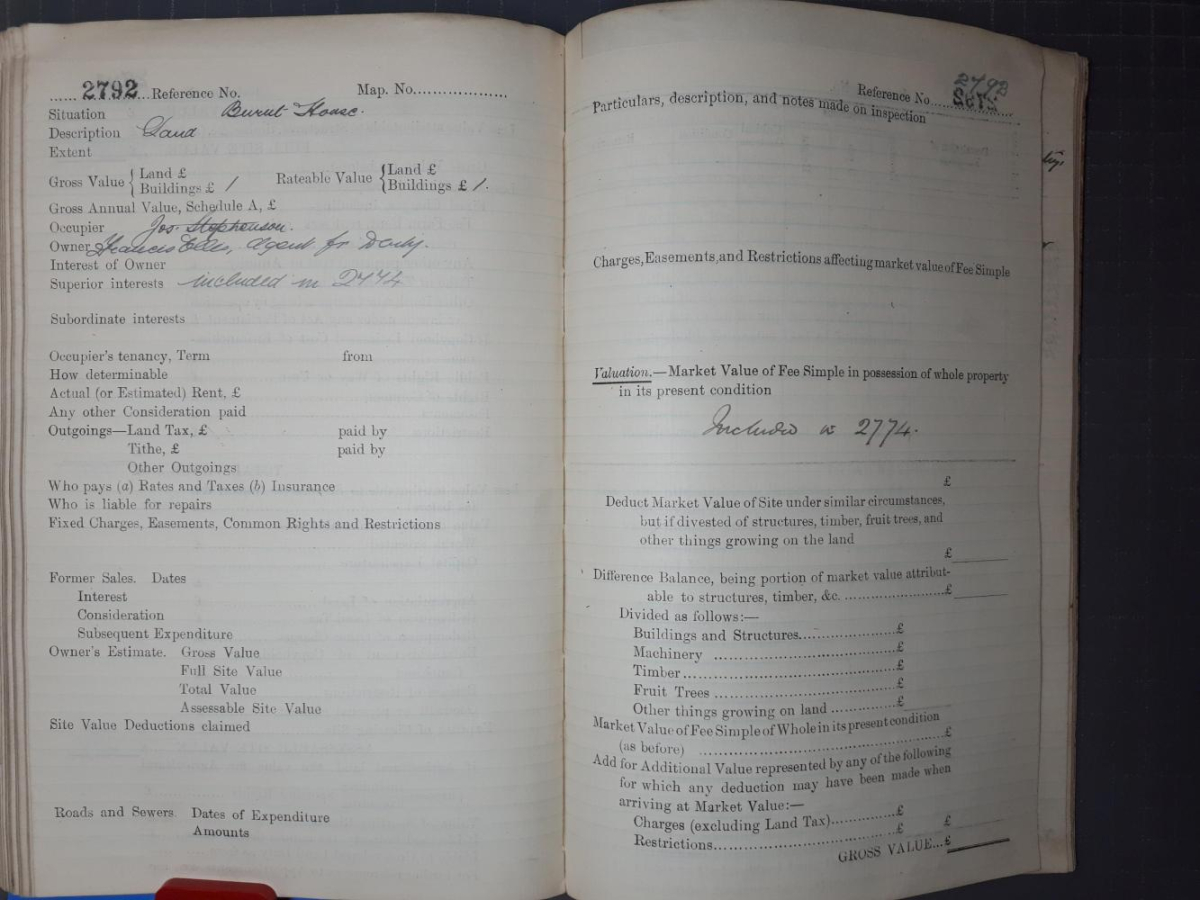 2792 Reference No. Map. No...................
Situation Burnt House.
Description Land
Extent
Gross Value { Land £
Buildings £ 1
Rateable Value { Land £
Buildings £ 1.
Gross Annual Value, Schedule A, £
Occupier Jos. Stephenson.
Owner Francis Ellis, Agent for
Interest of Owner
Superior interests included in 2774
Subordinate interests
Occupier's tenancy, Term from
How determinable
Actual (or Estimated) Rent, £
Any other Consideration paid
Outgoings—Land Tax, £ paid by
Tithe, £ paid by
Other Outgoings
Who pays (a) Rates and Taxes (b) Insurance
Who is liable for repairs
Fixed Charges, Easements, Common Rights and Restrictions
Former Sales. Dates
Interest
Consideration
Subsequent Expenditure
Owner's Estimate. Gross Value
Full Site Value
Total Value
Assessable Site Value
Site Value Deductions claimed
Roads and Sewers. Dates of Expenditure
Amounts
2792
Reference No.
Particulars, description, and notes made on inspection
Charges, Easements, and Restrictions affecting market value of Fee Simple
Valuation.—Market Value of Fee Simple in possession of whole property
in its present condition
Included in 2774.
£
Deduct Market Value of Site under similar circumstances,
but if divested of structures, timber, fruit trees, and
other things growing on the land
£
Difference Balance, being portion of market value attribut-
able to structures, timber, &c. ........................£
Divided as follows:—
Buildings and Structures......................£
Machinery ......................................£
Timber............................................£
Fruit Trees ......................................£
Other things growing on land ..............£
Market Value of Fee Simple of Whole in its present condition
(as before) ..................................................£
Add for Additional Value represented by any of the following
for which any deduction may have been made when
arriving at Market Value:—
Charges (excluding Land Tax)..............£
Restrictions......................................£ £
GROSS VALUE...£